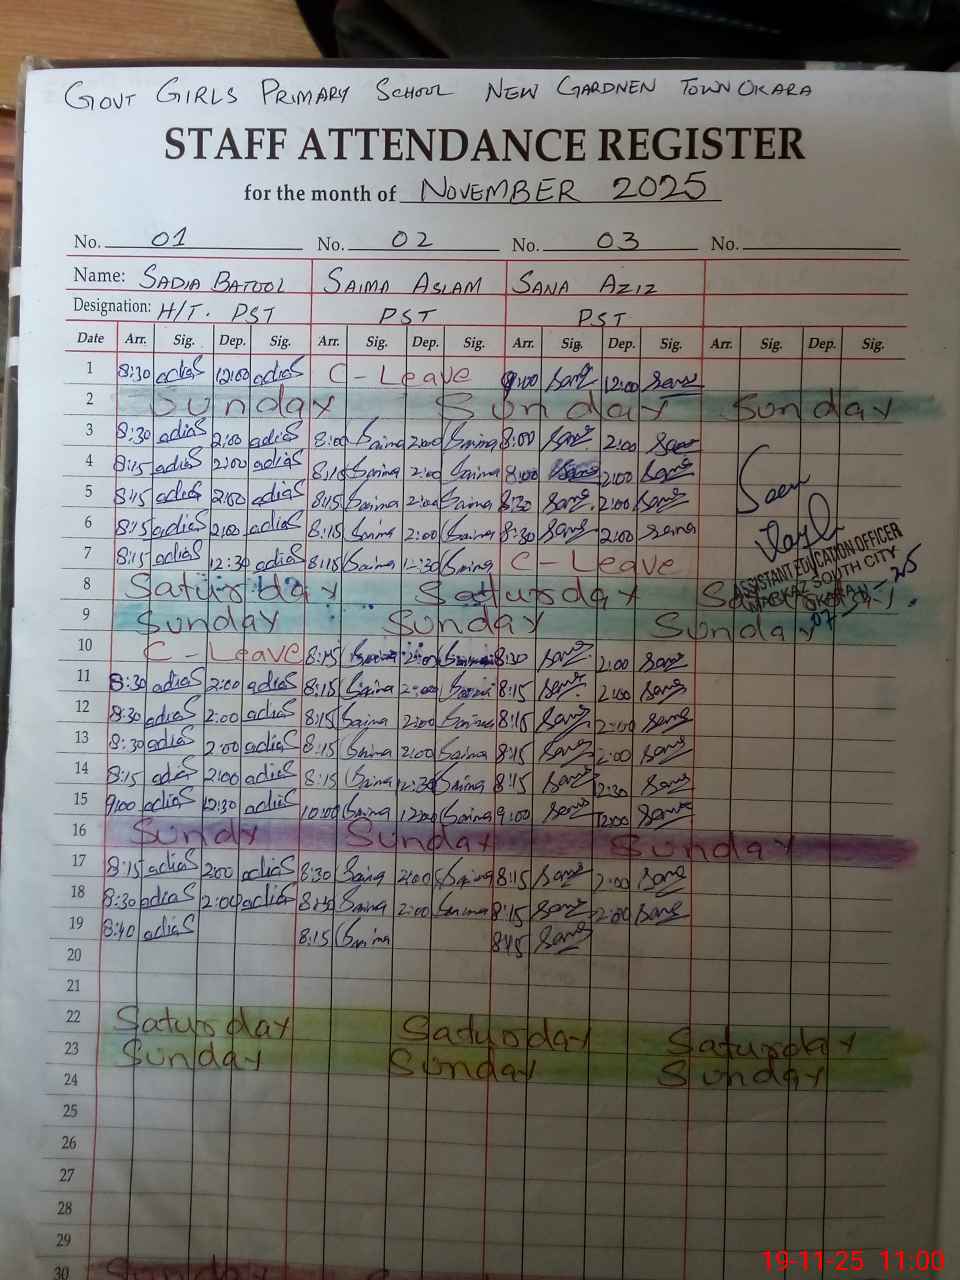 GOVT GIRLS PRIMARY SCHOOL NEW GARDNEN TOWN OKARA
STAFF ATTENDANCE REGISTER
for the month of NOVEMBER 2025
No. 01 No. 02 No. 03 No.
Name: SADIA BATOOL SAIMA ASLAM SANA AZIZ
Designation: H/T. PST PST PST
Date Arr. Sig. Dep. Sig. Arr. Sig. Dep. Sig. Arr. Sig. Dep. Sig. Arr. Sig. Dep. Sig.
1 8:30 adiaS 12:00 adiaS C-Leave 9:00 Sana 12:00 Sana
2 Sunday Sunday Sunday
3 8:30 adiaS 2:00 adiaS 8:00 Saima 2:00 Saima 8:00 Sana 2:00 Sana
4 8:15 adiaS 2:00 adiaS 8:15 Saima 2:00 Saima 8:00 Sana 2:00 Sana
5 8:15 adiaS 2:00 adiaS 8:15 Saima 2:00 Saima 8:30 Sana 2:00 Sana
Seen
6 8:15 adiaS 2:00 adiaS 8:15 Saima 2:00 Saima 8:30 Sana 2:00 Sana
7 8:15 adiaS 12:30 adiaS 8:15 Saima 12:30 Saima C-Leave
ASSISTANT EDUCATION OFFICER
MARKAZ SOUTH CITY
OKARA
8 Saturday Saturday
9 Sunday Sunday Sunday
10 C-Leave 8:15 Saima 2:00 Saima 8:30 Sana 2:00 Sana
11 8:30 adiaS 2:00 adiaS 8:15 Saima 2:00 Saima 8:15 Sana 2:00 Sana
12 8:30 adiaS 2:00 adiaS 8:15 Saima 2:00 Saima 8:15 Sana 2:00 Sana
13 8:30 adiaS 2:00 adiaS 8:15 Saima 2:00 Saima 8:15 Sana 2:00 Sana
14 8:15 adiaS 2:00 adiaS 8:15 Saima 12:30 Saima 8:15 Sana 2:30 Sana
15 9:00 adiaS 12:30 adiaS 10:00 Saima 12:00 Saima 9:00 Sana 12:00 Sana
16 Sundy Sunday Sunday
17 8:15 adiaS 2:00 adiaS 8:30 Saima 2:00 Saima 8:15 Sana 2:00 Sana
18 8:30 adiaS 2:00 adiaS 8:30 Saima 2:00 Saima 8:15 Sana 2:00 Sana
19 8:40 adiaS 8:15 Saima 8:15 Sana
20
21
22 Saturday Saturday Saturday
23 Sunday Sunday Sunday
24
25
26
27
28
29
30 Sunday
19-11-25 11:00